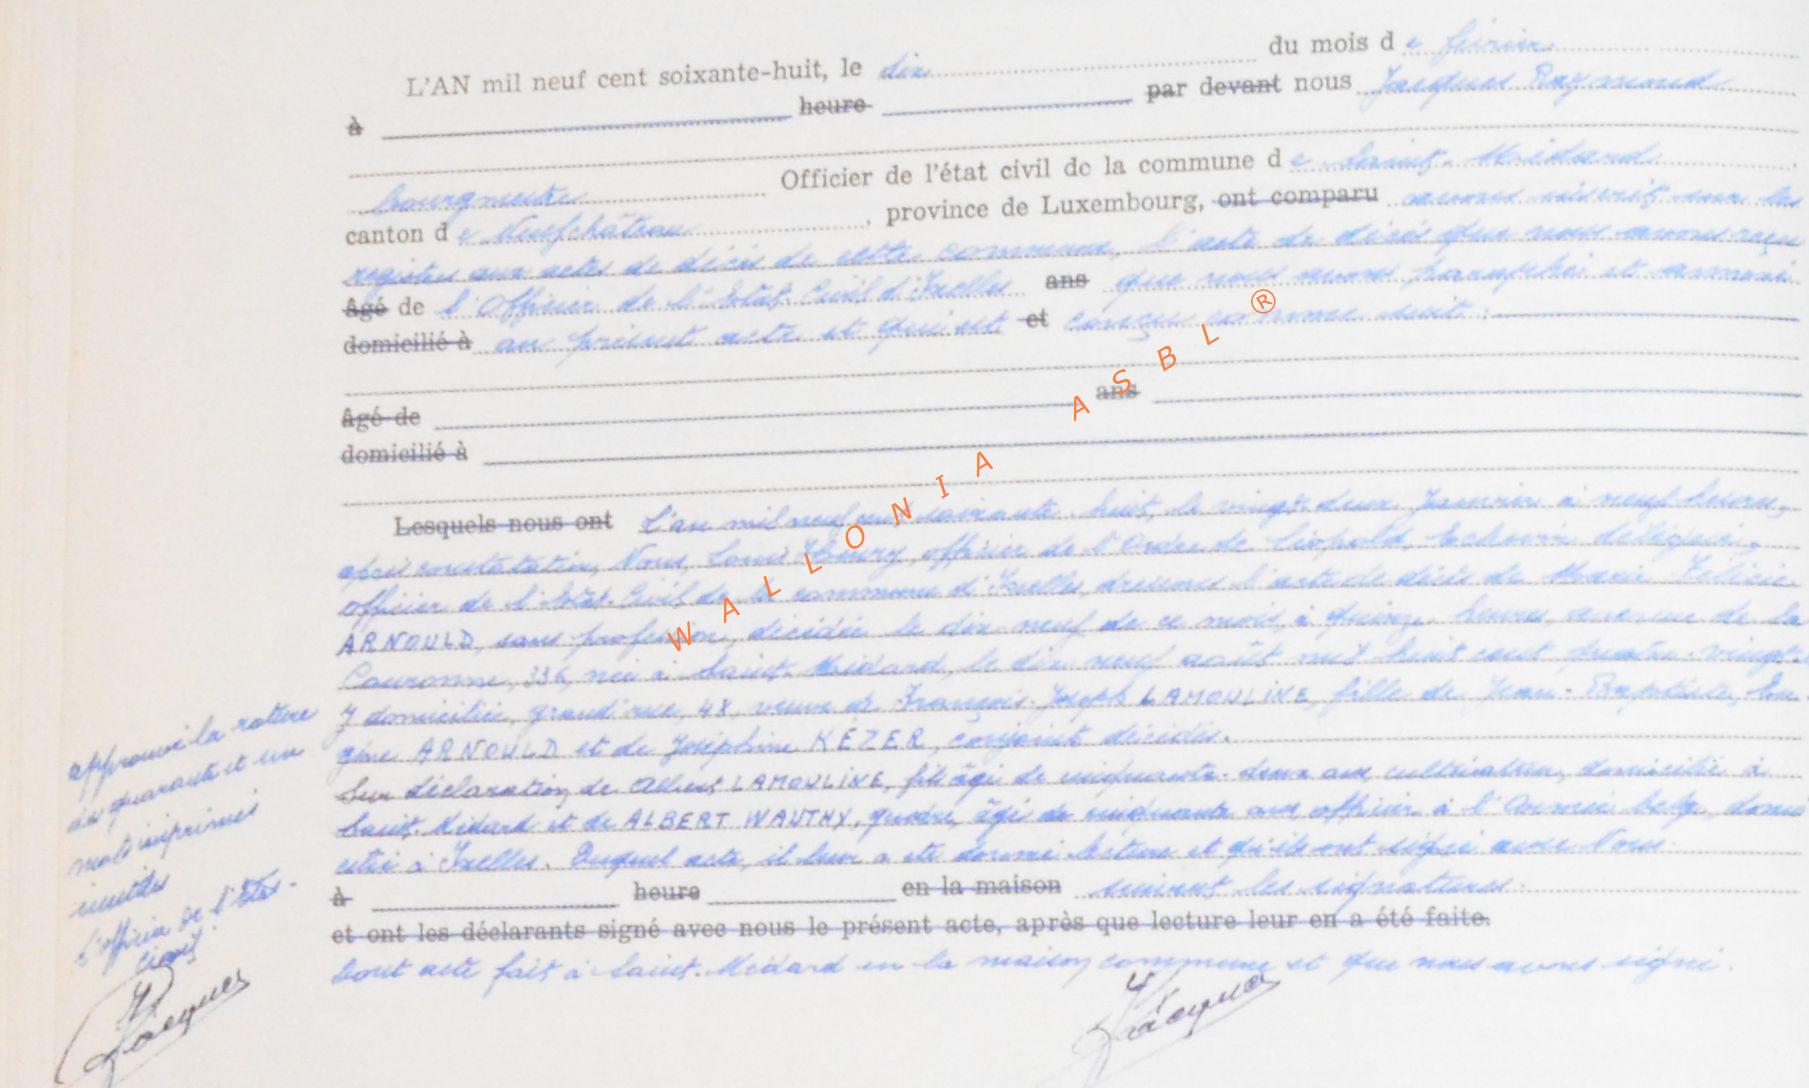 L'AN mil neuf cent soixante-huit, le dix du mois de février
à heure par devant nous Jacques Raymond
bourgmestre Officier de l'état civil de la commune de Saint-Médard
canton de Neufchâteau, province de Luxembourg, ont comparu avons inscrit sur les
registres aux actes de décès de cette commune, l'acte de décès que nous avons reçu
Âgé de l'Officier de l'Etat-Civil d'Ixelles ans que nous avons paraphé et annexé
domicilié à au présent acte et qui est et conçu comme suit :
âgé de ans
domicilié à
Lesquels nous ont L'an mil neuf cent soixante-huit, le vingt-deux Janvier à neuf heures,
après constatation, Nous, Louis, officier de l'Ordre de Léopold, Echevin délégué,
officier de l'Etat-Civil de la commune d'Ixelles, dressons l'acte de décès de Marie Félicie
ARNOULD, sans profession, décédée le dix-neuf de ce mois, à quinze heures, avenue de la
Couronne, 336, née à Saint-Médard, le dix neuf août mil huit cent quatre-vingt-
7 domiciliée, grand'rue, 48, veuve de François-Joseph LAMOULINE, fille de Jean-Baptiste, Eu
gène ARNOULD et de Joséphine KEZER, conjoint décédés.
Sur déclaration de Albert LAMOULINE, fils âgé de cinquante-deux ans cultivateur, domicilié à
Saint-Médard et de ALBERT WAUTHY, gendre, âgé de cinquante ans officier à l'Armée belge, domi
cilié à Ixelles. Duquel acte, il leur a été donné lecture et qu'ils ont signé avec Nous.
à heure en la maison suivent les signatures.
et ont les déclarants signé avec nous le présent acte, après que lecture leur en a été faite.
Dont acte fait à Saint-Médard en la maison commune et que nous avons signé.
approuvé la rature
de quarante et un
mots imprimés
inutiles
L'officier de l'Etat-
Civil
Jacques
Jacques
WALLONIA ASBL ®